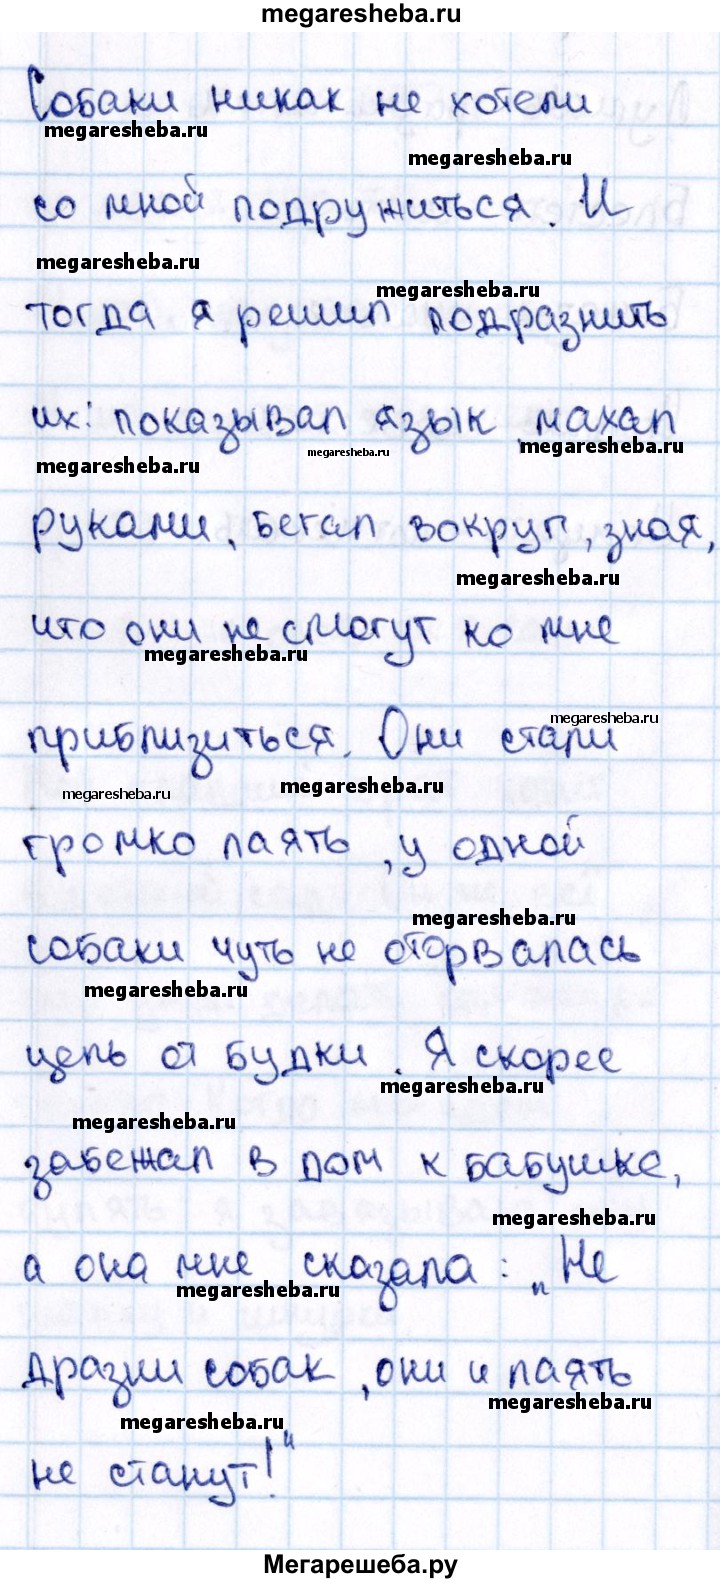 megaresheba.ru
Собаки никак не хотели
megaresheba.ru
megaresheba.ru
со мной подружиться. И
megaresheba.ru
megaresheba.ru
тогда я решил подразнить
их: показывал язык, махал
megaresheba.ru
megaresheba.ru
megaresheba.ru
руками, бегал вокруг, зная,
megaresheba.ru
что они не смогут ко мне
megaresheba.ru
megaresheba.ru
приблизиться. Они стали
megaresheba.ru
megaresheba.ru
громко лаять, у одной
megaresheba.ru
собаки чуть не оторвалась
megaresheba.ru
цепь от будки. Я скорее
megaresheba.ru
megaresheba.ru
забежал в дом к бабушке,
megaresheba.ru
а она мне сказала: „Не
megaresheba.ru
дразни собак, они и лаять
megaresheba.ru
megaresheba.ru
не станут!“
Мегарешеба.ру